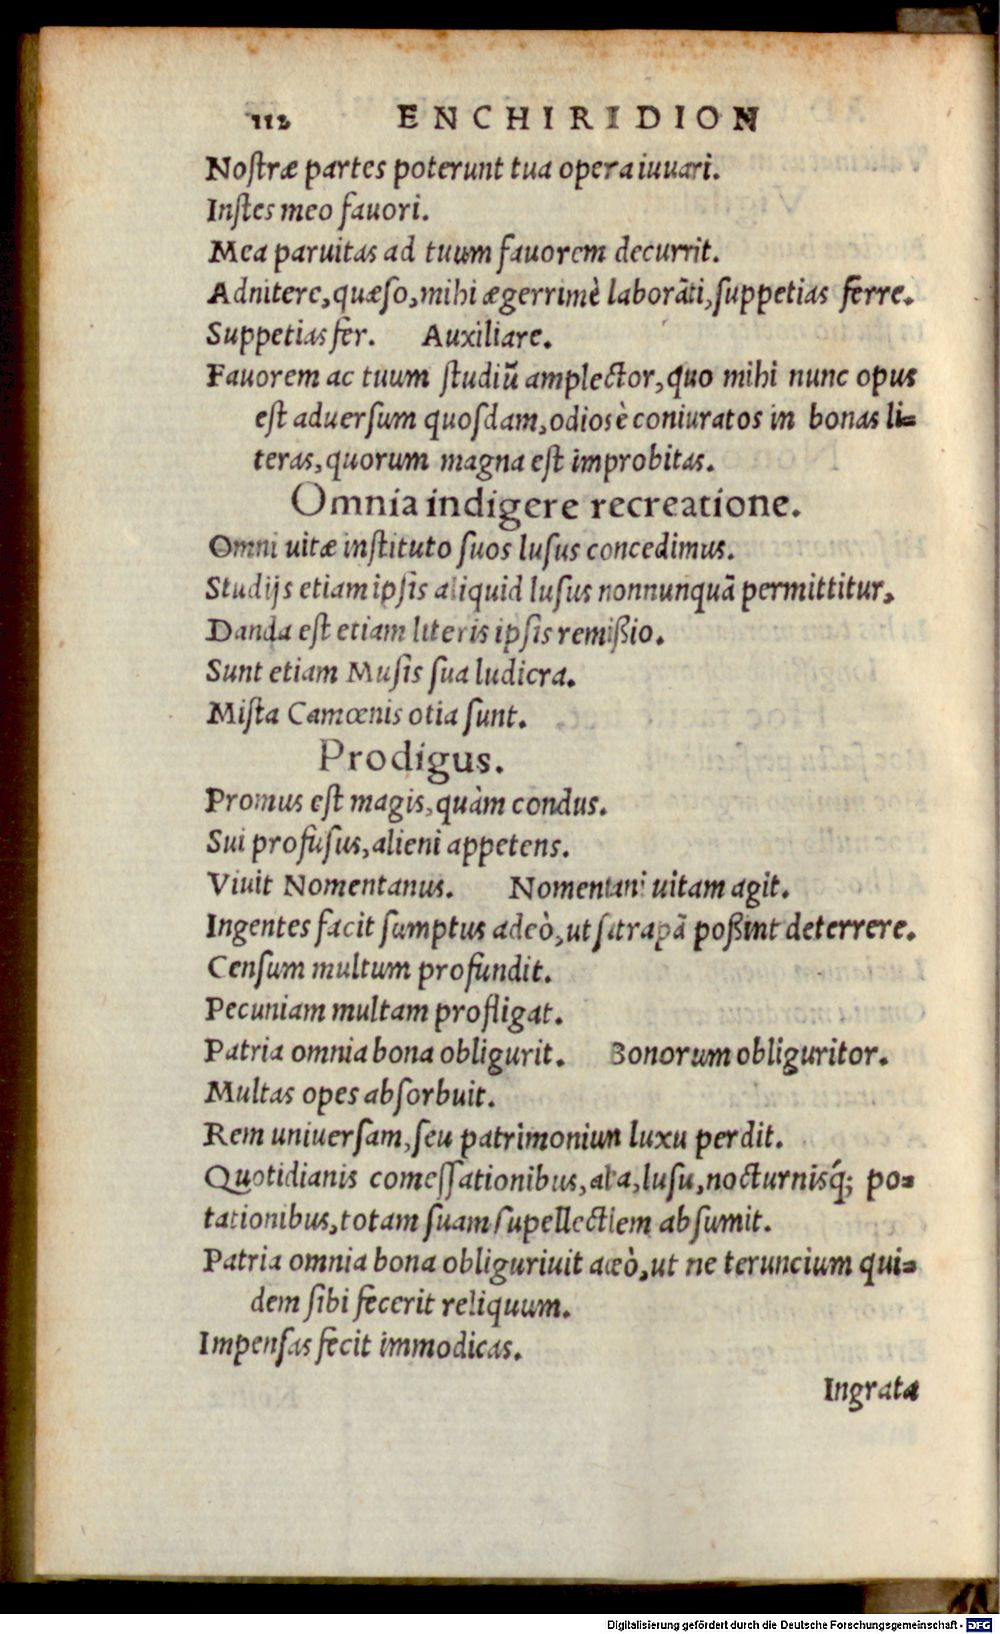 112 ENCHIRIDION
Nostræ partes poterunt tua opera iuuari.
Instes meo fauori.
Mea paruitas ad tuum fauorem decurrit.
Adnitere, quæso, mihi ægerrimè laborāti, suppetias ferre.
Suppetias fer. Auxiliare.
Fauorem ac tuum studiū amplector, quo mihi nunc opus
est aduersum quosdam, odiosè coniuratos in bonas li-
teras, quorum magna est improbitas.
Omnia indigere recreatione.
Omni uitæ instituto suos lusus concedimus.
Studijs etiam ipsis aliquid lusus nonnunquā permittitur,
Danda est etiam literis ipsis remißio.
Sunt etiam Musis sua ludicra.
Mista Camœnis otia sunt.
Prodigus.
Promus est magis, quàm condus.
Sui profusus, alieni appetens.
Viuit Nomentanus. Nomentani uitam agit.
Ingentes facit sumptus adeò, ut satrapā poßint deterrere.
Censum multum profundit.
Pecuniam multam profligat.
Patria omnia bona obligurit. Bonorum obliguritor.
Multas opes absorbuit.
Rem uniuersam, seu patrimonium luxu perdit.
Quotidianis comessationibus, alea, lusu, nocturnisq́; po-
tationibus, totam suam supellectilem absumit.
Patria omnia bona obliguriuit adeò, ut ne teruncium qui-
dem sibi fecerit reliquum.
Impensas fecit immodicas.
Ingrata
Digitalisierung gefördert durch die Deutsche Forschungsgemeinschaft - DFG